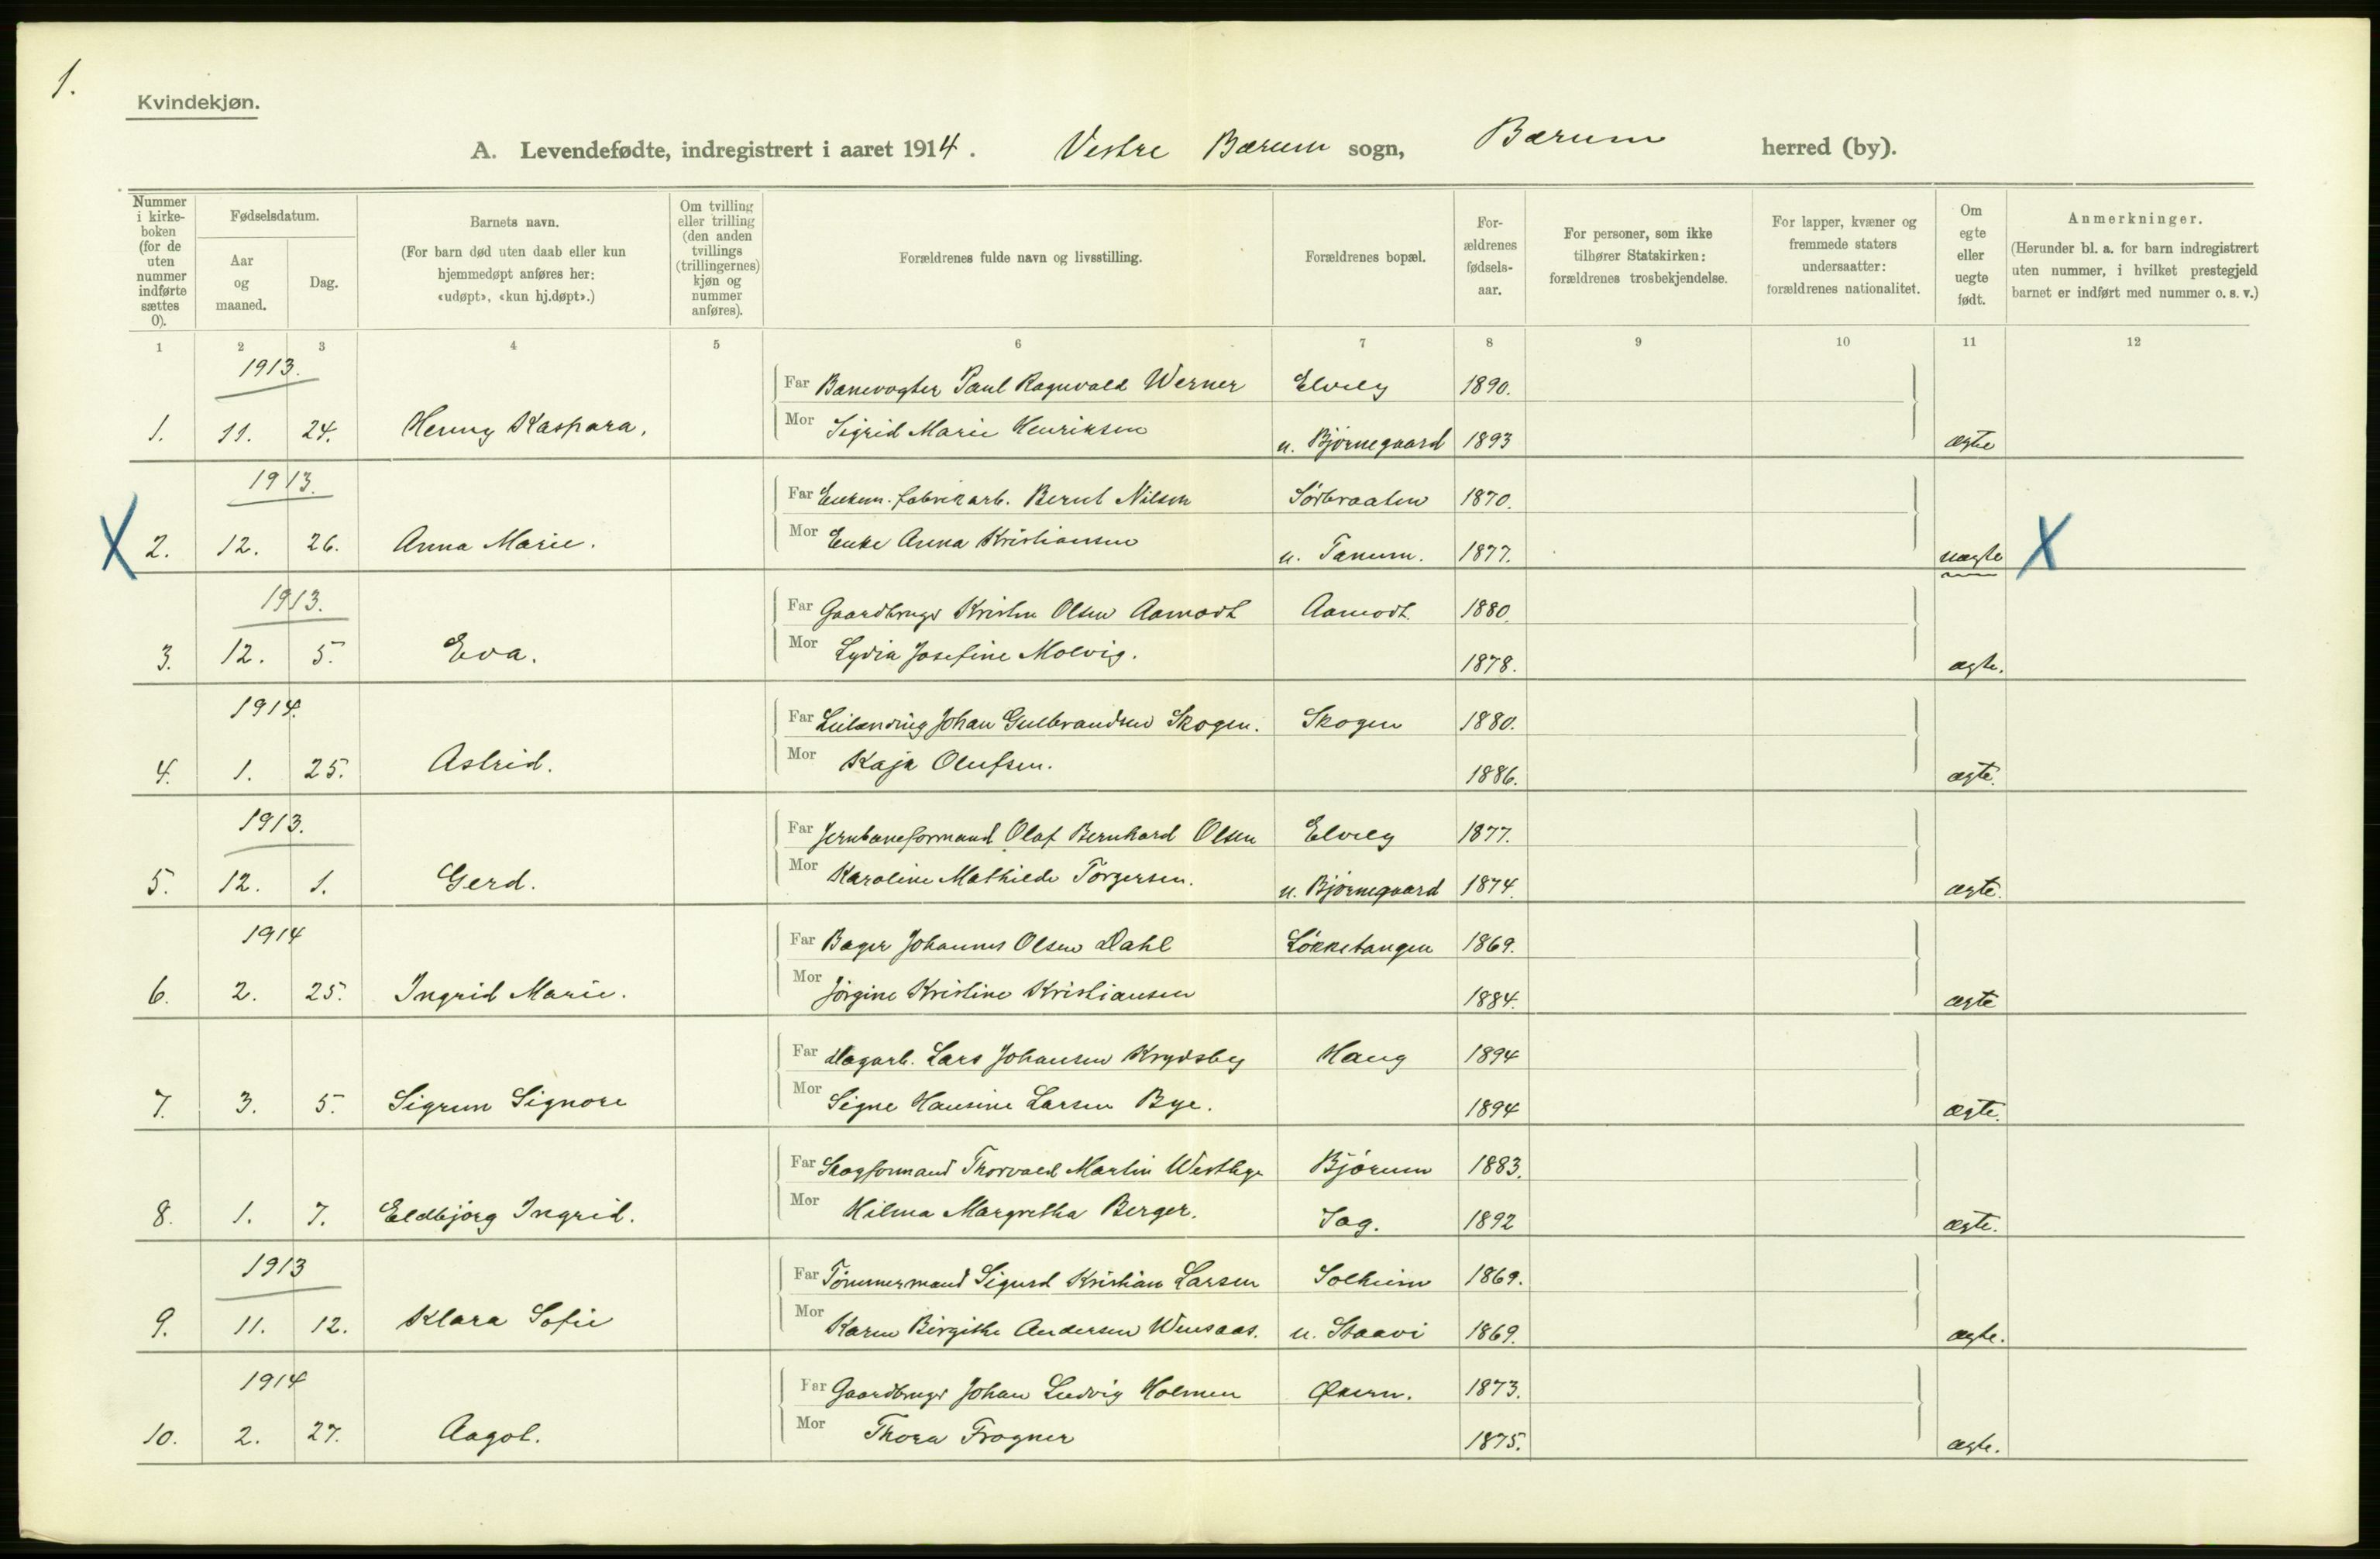 1.
Kvindekjøn.
A. Levendefødte, indregistrert i aaret 1914. Vestre Bærum sogn, Bærum herred (by).
Nummer i kirke-boken (for de uten nummer indførte sættes 0).
Fødselsdatum.
Aar og maaned.
Dag.
Barnets navn.
(For barn død uten daab eller kun hjemmedøpt anføres her: «udøpt», «kun hj.døpt».)
Om tvilling eller trilling (den anden tvillings (trillingernes) kjøn og nummer anføres).
Forældrenes fulde navn og livsstilling.
Forældrenes bopæl.
For-ældrenes fødsels-aar.
For personer, som ikke tilhører Statskirken: forældrenes trosbekjendelse.
For lapper, kvæner og fremmede staters undersaatter: forældrenes nationalitet.
Om egte eller uegte født.
Anmerkninger.
(Herunder bl. a. for barn indregistrert uten nummer, i hvilket prestegjeld barnet er indført med nummer o. s. v.)
1 2 3 4 5 6 7 8 9 10 11 12
1913.
Far Banevogter Paul Ragnvald Werner Elvely 1890.
1. 11. 24. Henny Kaspara. Mor Sigrid Marie Henriksen u. Bjørnegaard 1893 ægte
1913.
Far Enkem. fabrikarb. Bernt Nilsen Sørbraaten 1870.
X 2. 12. 26. Anna Marie. Mor Enke Anna Kristiansen u. Tanum. 1877. uægte X
1913.
Far Gaardbruger Kristen Olsen Aamodt Aamodt. 1880.
3. 12. 5. Eva. Mor Lydia Josefine Molvig. 1878. ægte.
1914.
Far Leilænding Johan Gulbrandsen Skogen. Skogen 1880.
4. 1. 25. Astrid. Mor Kaja Olufsen. 1886. ægte.
1913.
Far Jernbaneformand Olaf Bernhard Olsen Elvely 1877.
5. 12. 1. Gerd. Mor Karoline Mathilde Torgersen. u. Bjørnegaard 1874. ægte.
1914
Far Bager Johannes Olsen Dahl Løkketangen 1869.
6. 2. 25. Ingrid Marie. Mor Jørgine Kristine Kristiansen 1884. ægte
Far Dagarb. Lars Johansen Krydsby Haug 1894
7. 3. 5. Sigrun Signore Mor Signe Hansine Larsen Bye. 1894 ægte.
Far Skogformand Thorvald Martin Westbye Bjørum 1883.
8. 1. 7. Eldbjørg Ingrid. Mor Hilma Margretha Berger. Sag. 1892 ægte.
1913
Far Tømmermand Sigurd Kristian Larsen Solheim 1869.
9. 11. 12. Klara Sofie Mor Karen Birgithe Andersen Wensaas. u. Staavi 1869. ægte.
1914
Far Gaardbruger Johan Ludvig Holmen Økern. 1873.
10. 2. 27. Aagot. Mor Thora Frogner 1875. ægte.